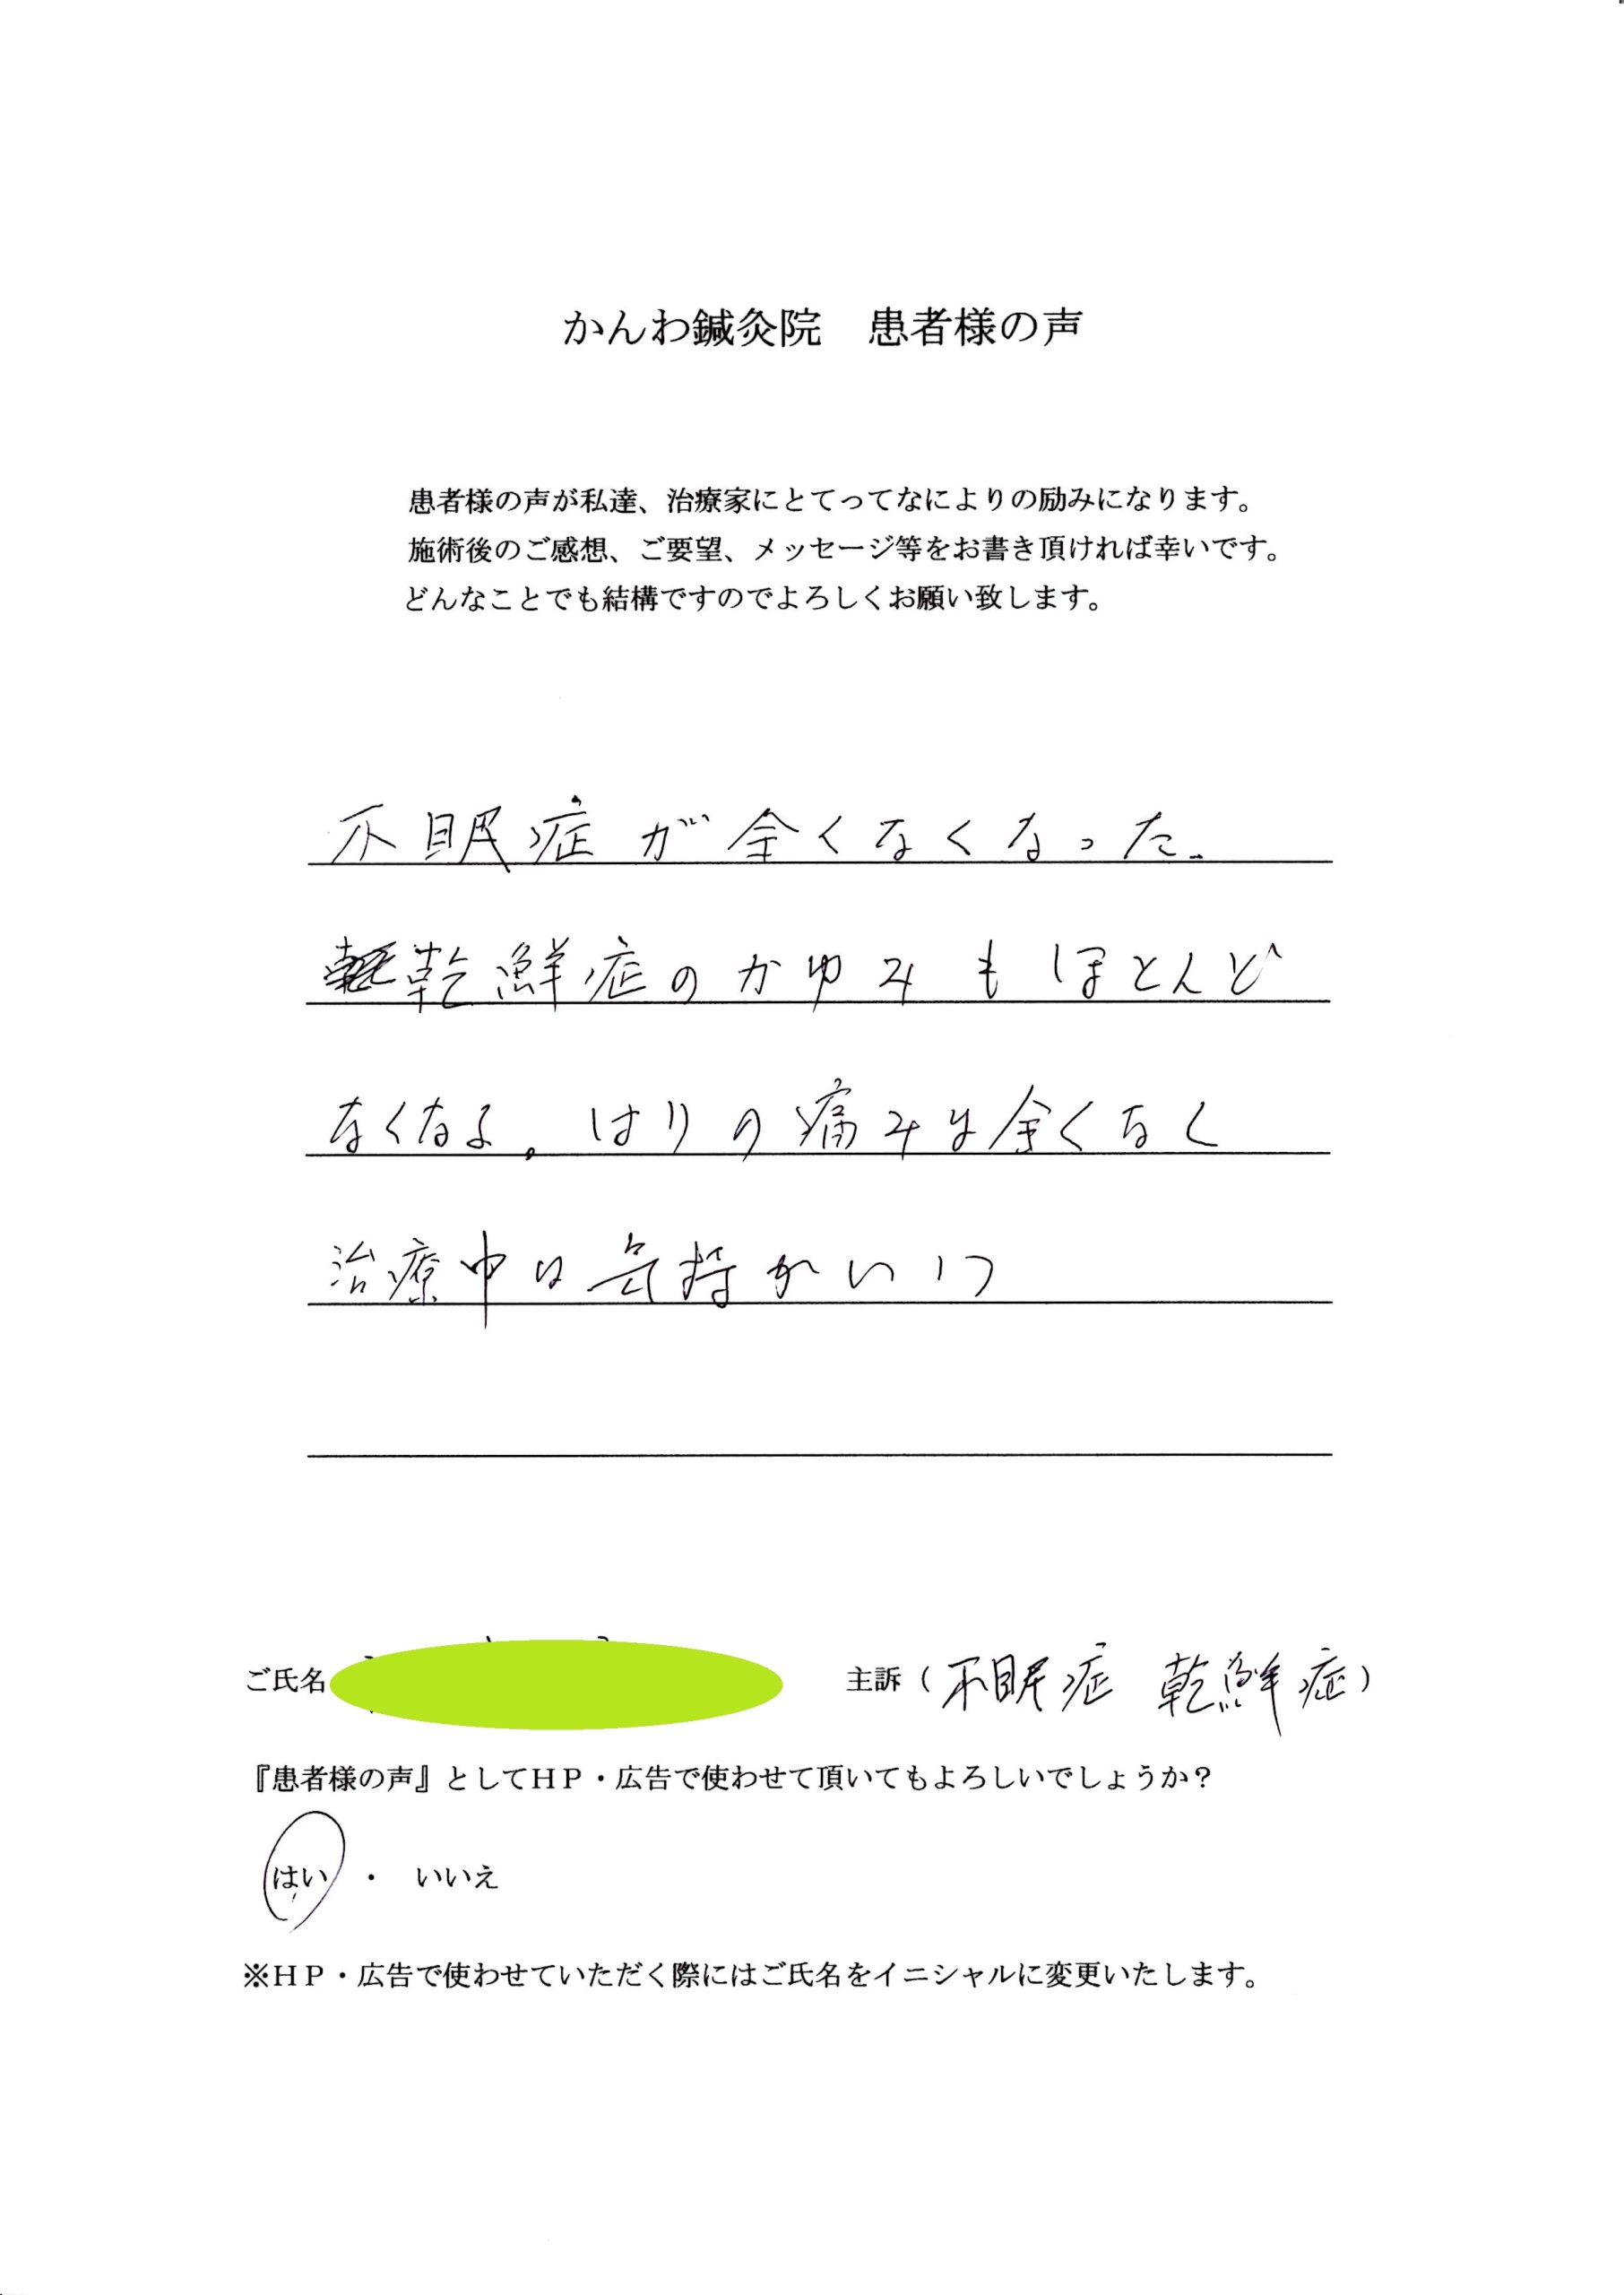 かんわ鍼灸院　患者様の声
患者様の声が私達、治療家にとてってなによりの励みになります。
施術後のご感想、ご要望、メッセージ等をお書き頂ければ幸いです。
どんなことでも結構ですのでよろしくお願い致します。
不眠症が全くなくなった.
乾鮮症のかゆみもほとんど
なくなる。はりの痛みは全くなく
治療中は気持がいい
ご氏名 主訴（不眠症 乾鮮症）
『患者様の声』としてＨＰ・広告で使わせて頂いてもよろしいでしょうか？
はい ・ いいえ
※ＨＰ・広告で使わせていただく際にはご氏名をイニシャルに変更いたします。